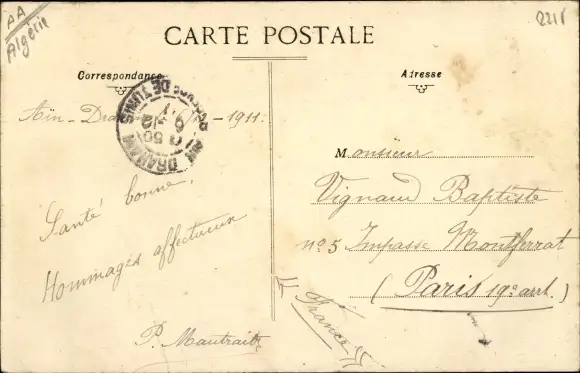 AA
Algérie
2218
CARTE POSTALE
Correspondance
Adresse
Aïn-Dra - 1911.
RÉGENCE DE TUNIS
AIN DRAHAM
9-12
Santé bonne.
Hommages affectueux
P. Mautrait
Monsieur
Vignaud Baptiste
n° 5 Impasse Montferrat
(Paris 19e arrt.)
France